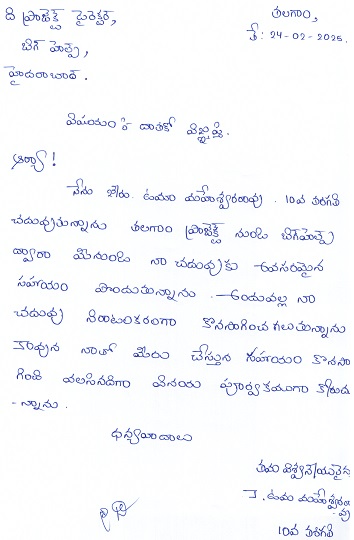 ది ప్రాజెక్ట్ డైరెక్టర్,
తలగాం,
బిగ్ హెల్ప్,
తే: 24-02-2025.
హైదరాబాద్.
విషయం:- దాతకో విజ్ఞప్తి.
ఆర్యా!
నేను జె. ఉమా మహేశ్వరరావు. 10వ తరగతి
చదువుతున్నాను తలగాం ప్రాజెక్ట్ నుండి బిగ్‌హెల్ప్
ద్వారా మీనుండి నా చదువుకు అవసరమైన
సహాయం పొందుతున్నాను. అందువల్ల నా
చదువు నిరాటంకంగా కొనసాగించ గలుతున్నాను
కావున నాతో మీరు చేస్తున సహాయం కొనసా
గించ వలసినదిగా వినయ పూర్వకముగా కోరుచు
-న్నాను.
ధన్యవాదాలు
తమ విశ్వసనీయుడైన
J. ఉమా మహేశ్వరరా
వు
10వ తరగతి